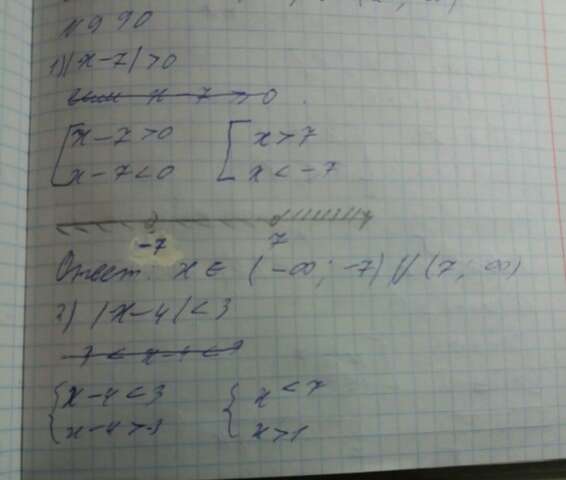 №990
1) |x-7|>0
x-7>0
[x-7>0 [x>7
x-7<0 x<-7
-7 7
Ответ: x ∈ (-∞; -7) U (7; ∞)
2) |x-4|<3
{x-4<3 {x<7
x-4>-3 x>1